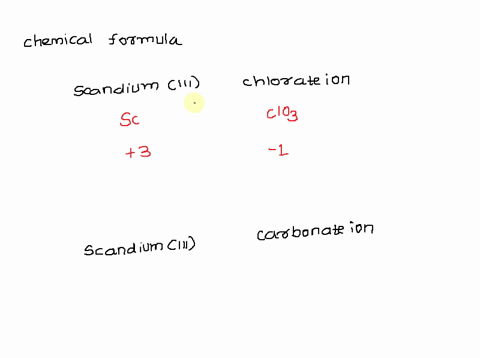 chemical formula
Scandium (III) chlorate ion
Sc ClO3
+3 -1
Scandium (III) carbonate ion